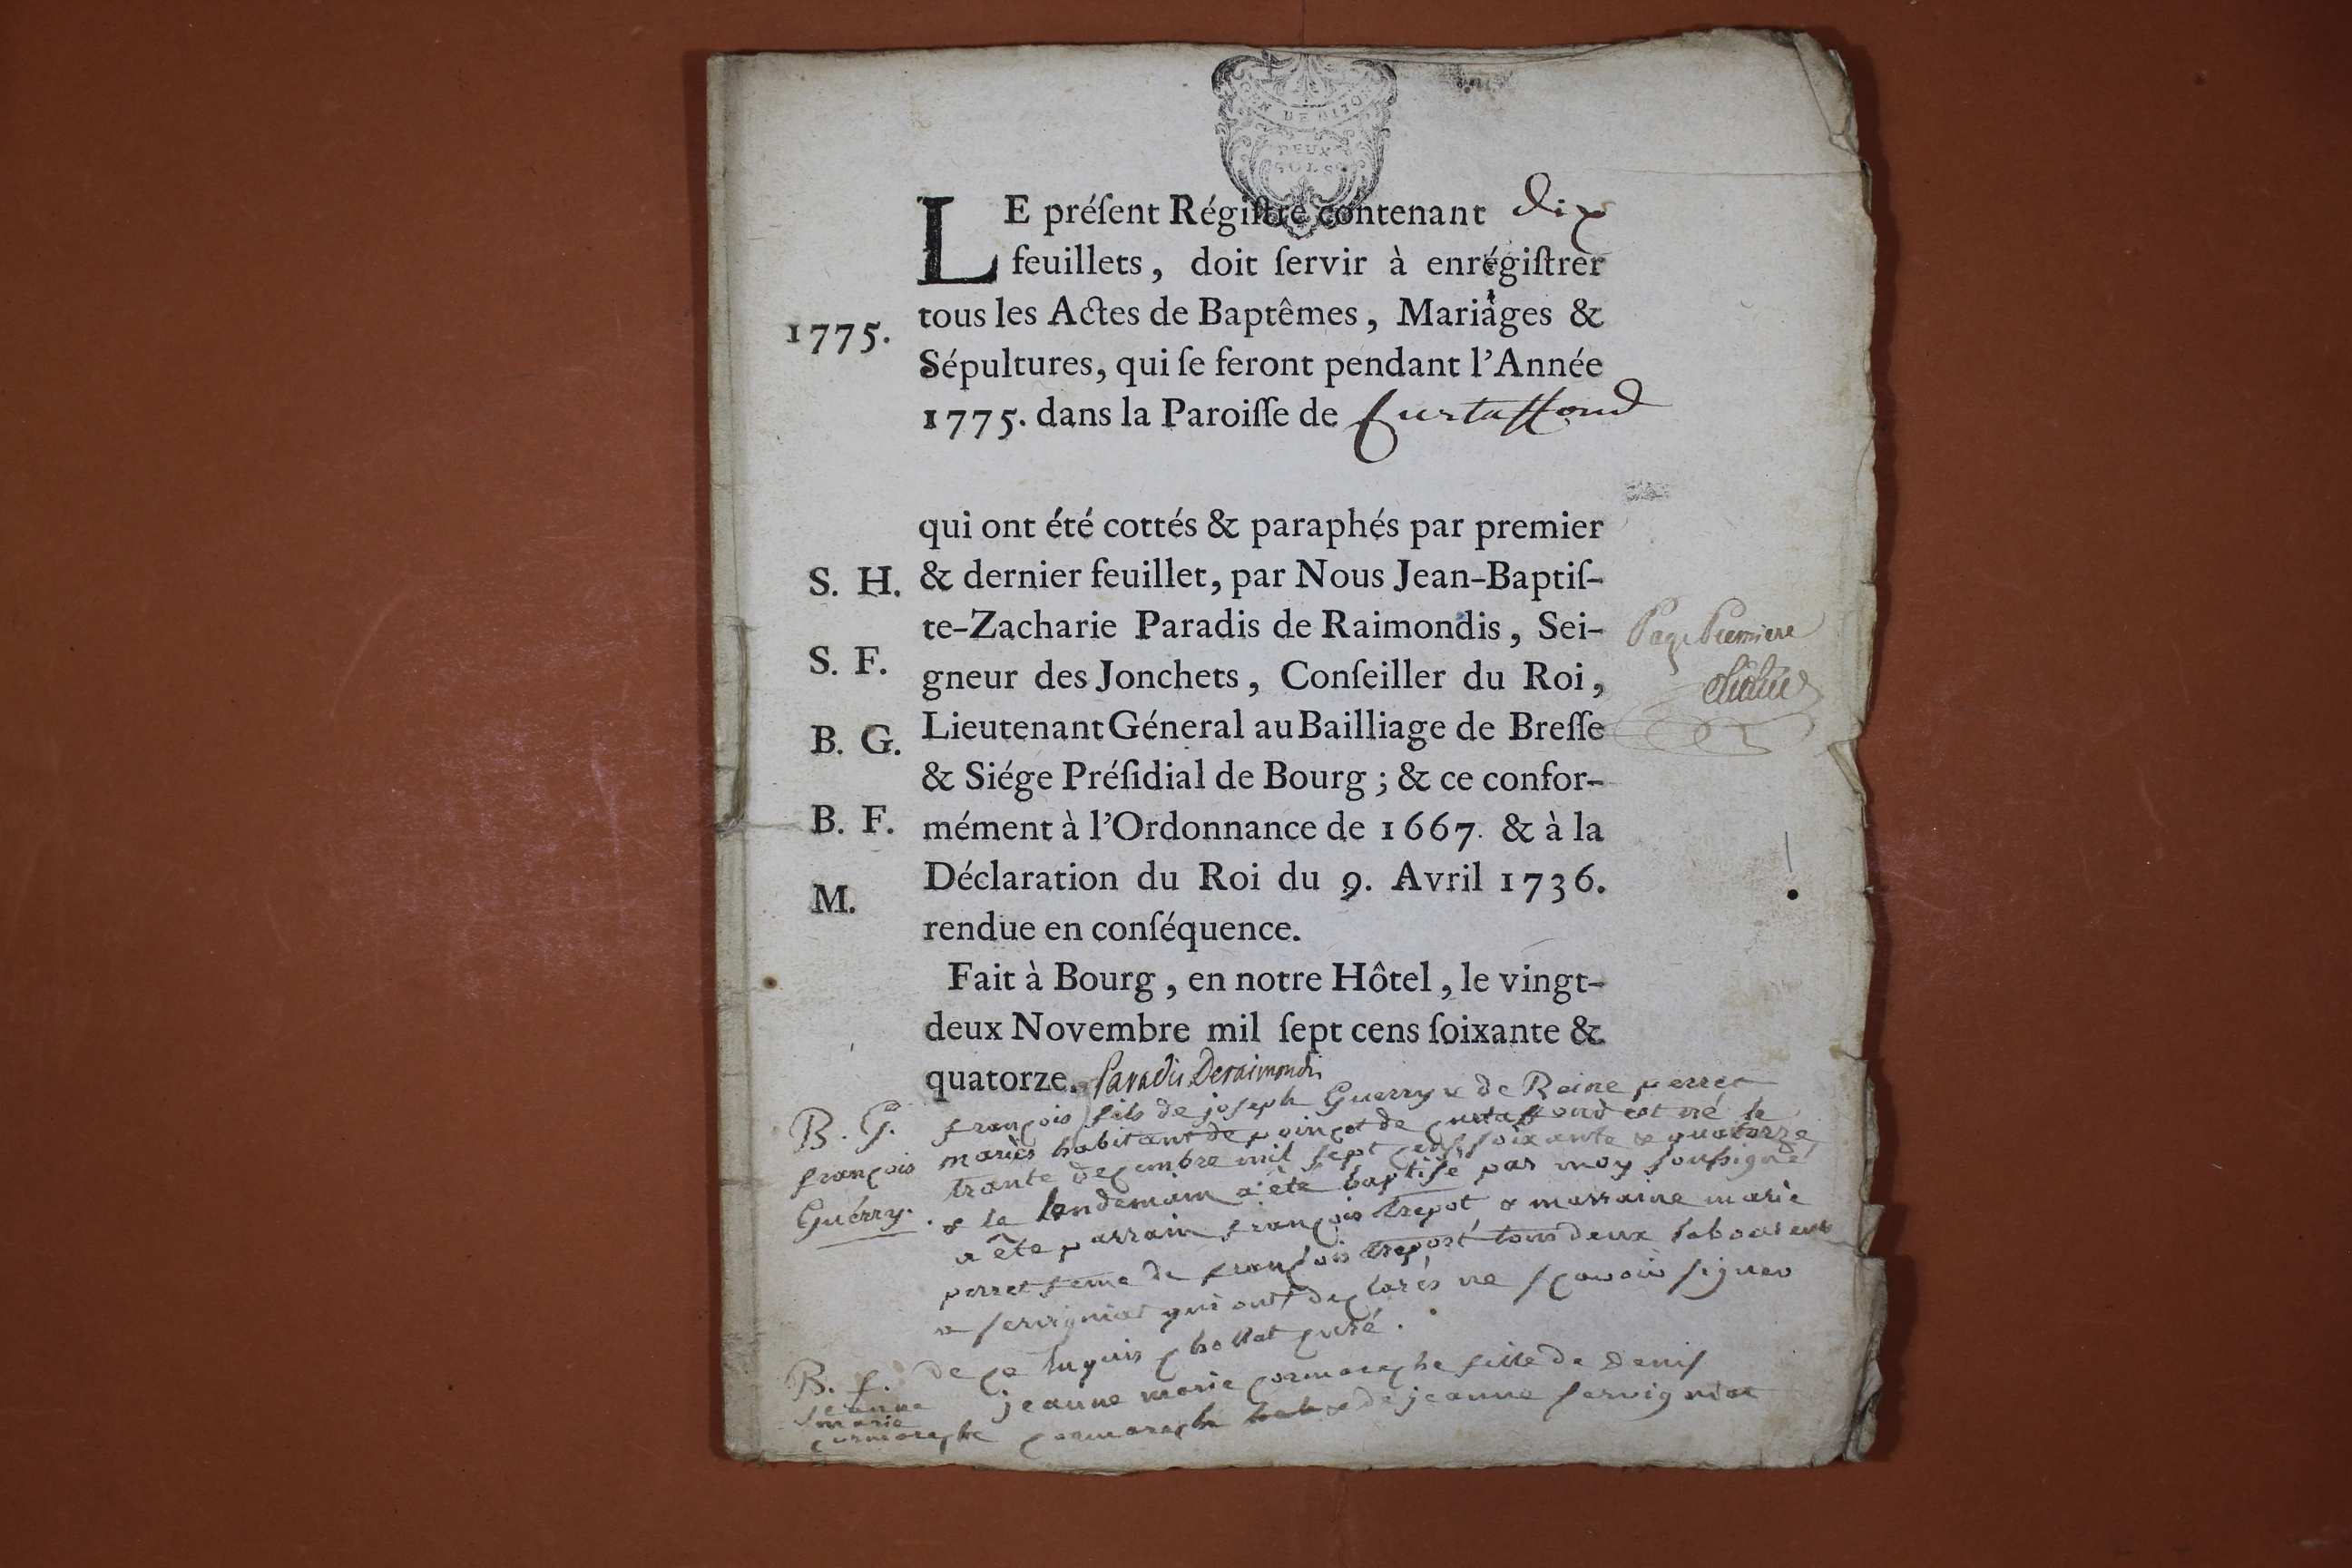 GEN DE DIJON
DEUX
SOLS
LE préſent Régiſtre contenant dix
feuillets, doit ſervir à enrégiſtrer
tous les Actes de Baptêmes, Mariages &
1775.
Sépultures, qui ſe feront pendant l'Année
1775. dans la Paroiſſe de Curtaffond
qui ont été cottés & paraphés par premier
S. H.
& dernier feuillet, par Nous Jean-Baptiſ-
te-Zacharie Paradis de Raimondis, Sei-
Page Premiere
S. F.
gneur des Jonchets, Conſeiller du Roi,
B. G.
Lieutenant Géneral au Bailliage de Breſſe
& Siége Préſidial de Bourg ; & ce confor-
B. F.
mément à l'Ordonnance de 1667. & à la
Déclaration du Roi du 9. Avril 1736.
M.
rendue en conſéquence.
Fait à Bourg, en notre Hôtel, le vingt-
deux Novembre mil ſept cens ſoixante &
quatorze. Paradis Deraimondis
B. G.
françois
Guérry.
françois fils de joseph Guerry & de Reine perret
mariés habitant de poinçot de curtaffond est né le
trante decembre mil sept cens soixante & quatorze
& le lendemain a été baptisé par moy soussigné
a été parrain françois trepot & marraine marie
perret feme de françois trepot tous deux laboureurs
a servigniat qui ont declarés ne sçavoir signer
de ce enquis chollat curé.
B. f.
jeanne
marie
cormoreche
jeanne marie cormoreche fille de denis
cormoreche & de jeanne servigniat